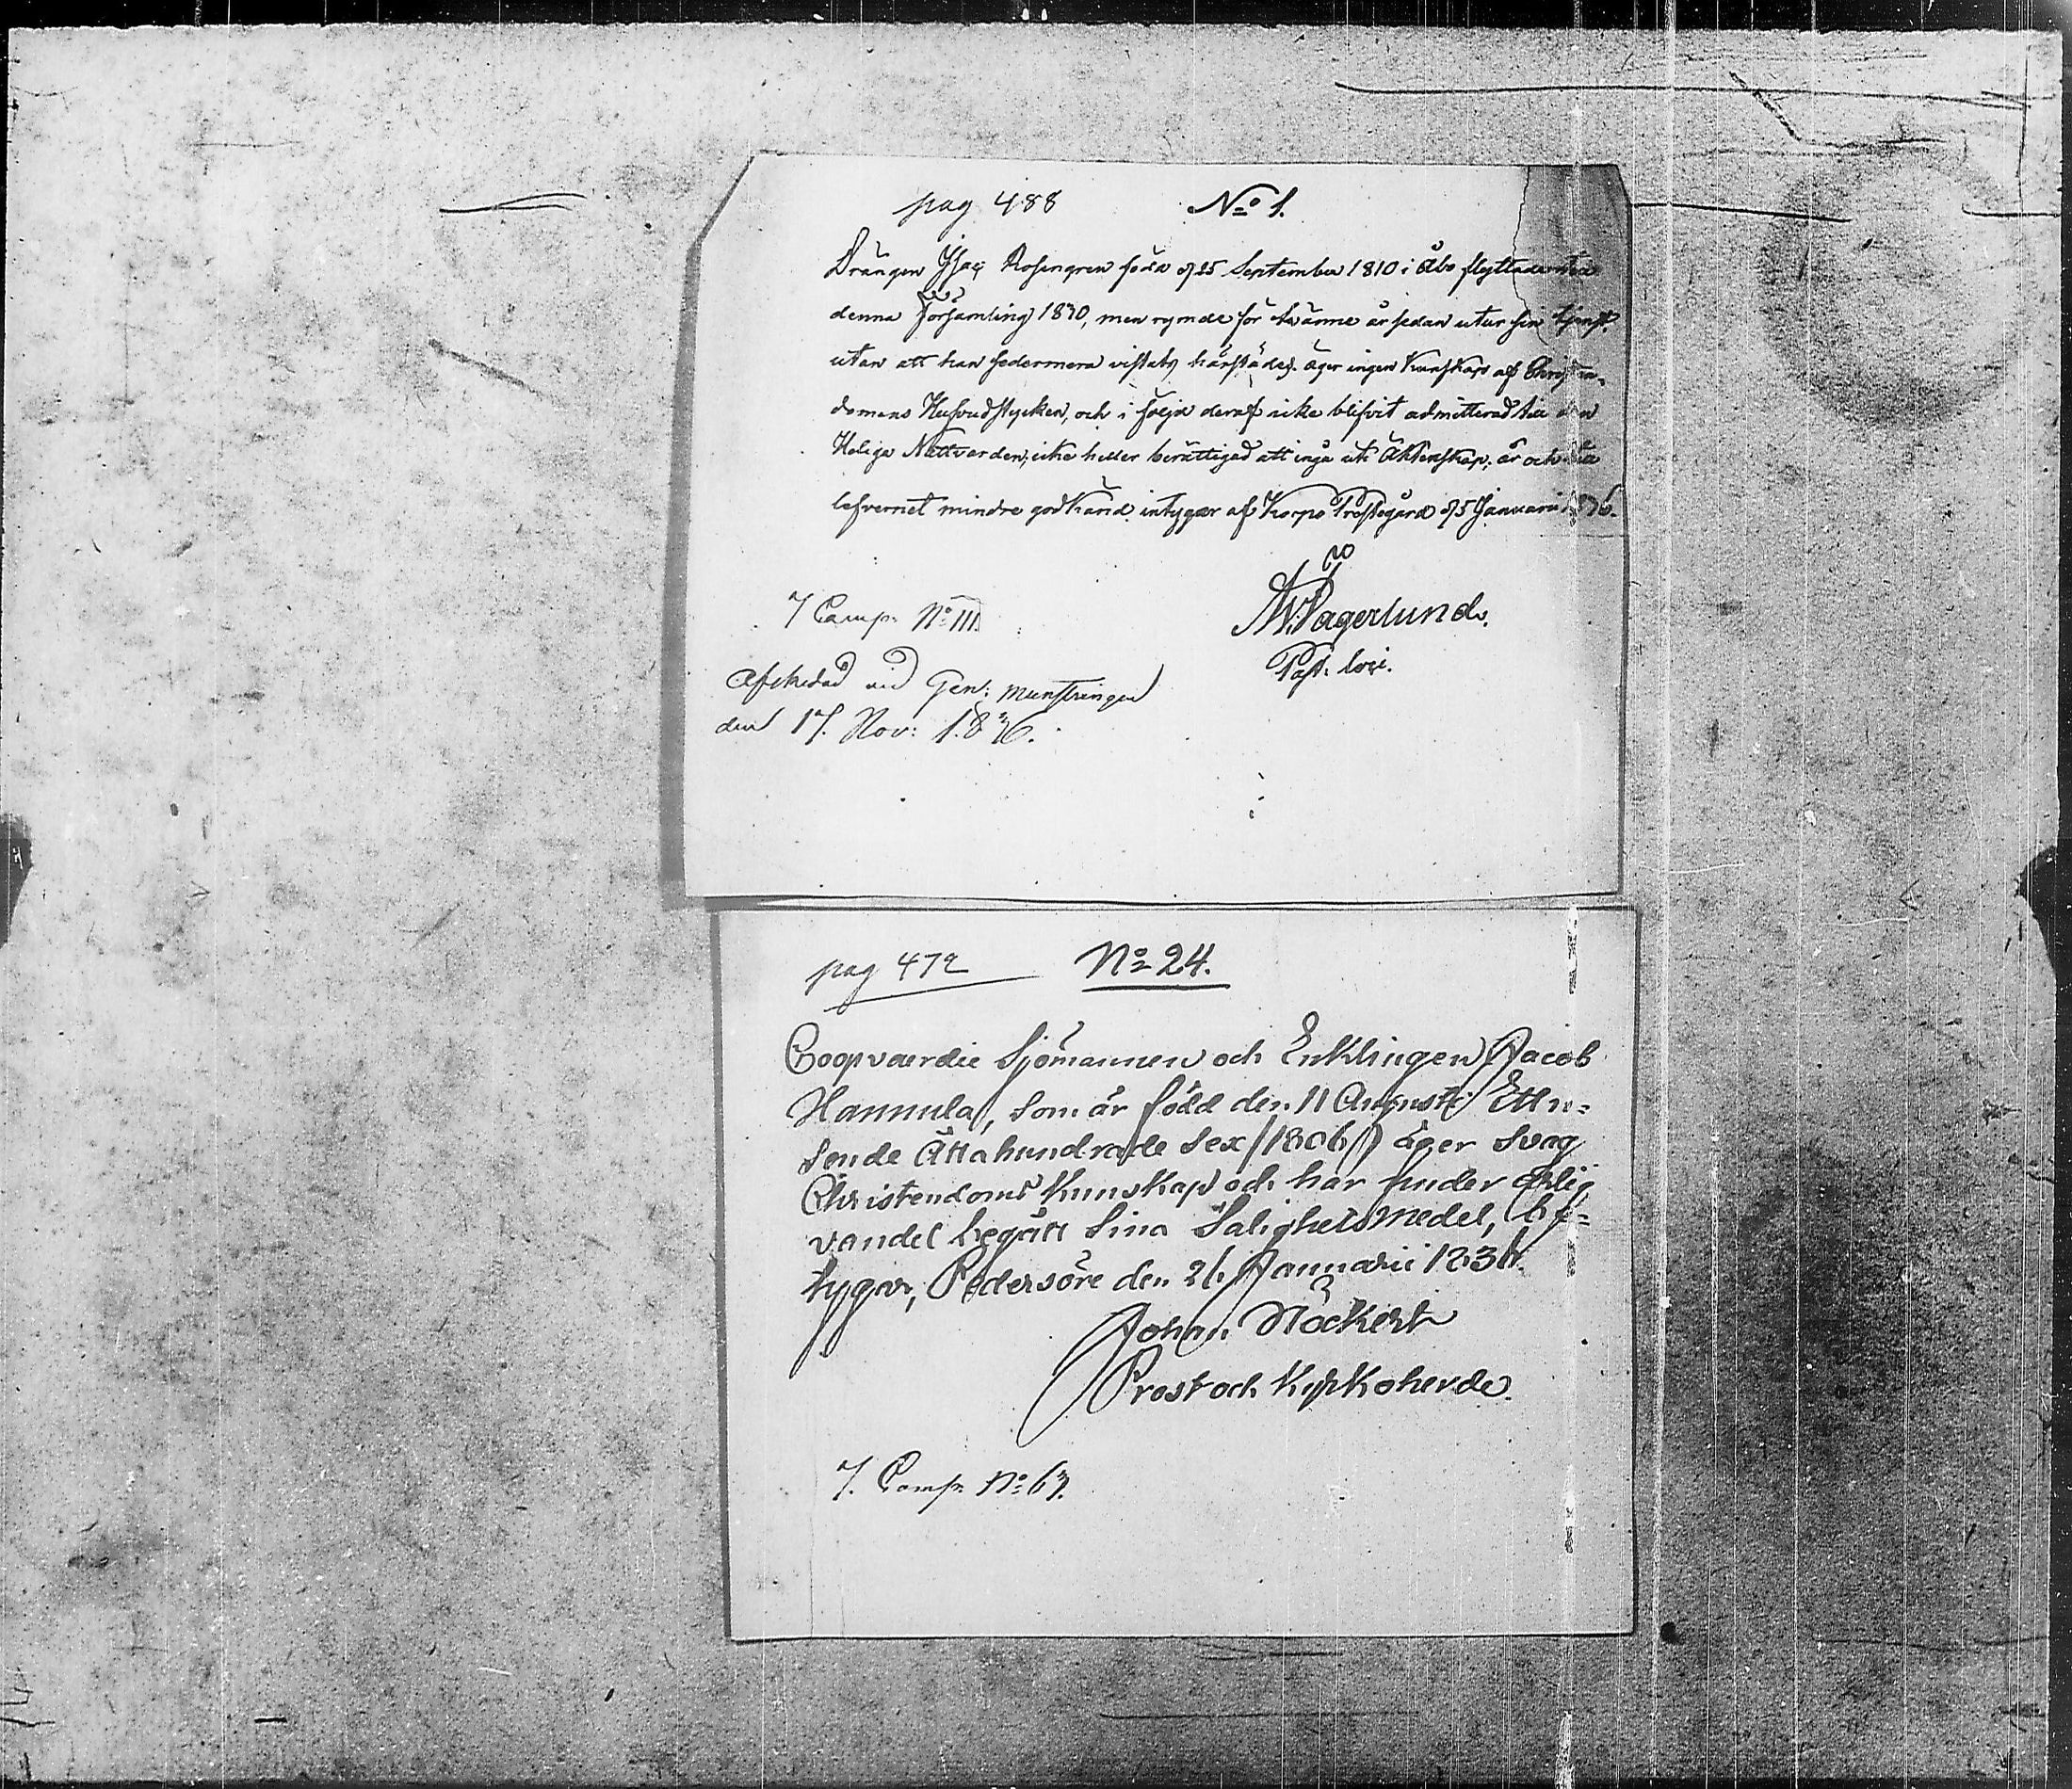 pag 488 No 1.
Drängen Isac Rosengren född d 25 September 1810 i Åbo flyttade
denna Församling 1830, men rymde för tvänne år sedan utur sin tjenst,
utan att han sedermera vistats härstädes. äger ingen Kunskap af Christen-
domens Hufvudstycken, och i följe deraf icke blifvit admitterad till den
Heliga Nattvarden, icke heller berättigad att ingå uti Äktenskap; är och till
lefvernet mindre godkänd. intygar af Korpo Prestegård d 5 Januari 1836.
Fågerlund.
Past. loci.
7 Comp. No 111
Afskedad vid Gen: munstringen
den 17. Nov: 1836.
pag 472 No 24.
Coopvaerdie Sjömannen och Enklingen Jacob
Hannula, som är född den 11 Augusti Ettu=
sende Åttahundrade Sex /1806/ äger svag
Christendoms Kunskap och har under ärlig
vandel begått Sina Salighetsmedel, be=
tygar, Pedersöre den 26 Januarii 1836.
Johan Häckert
Prost och Kyrkoherde.
7. Comp. No 63.